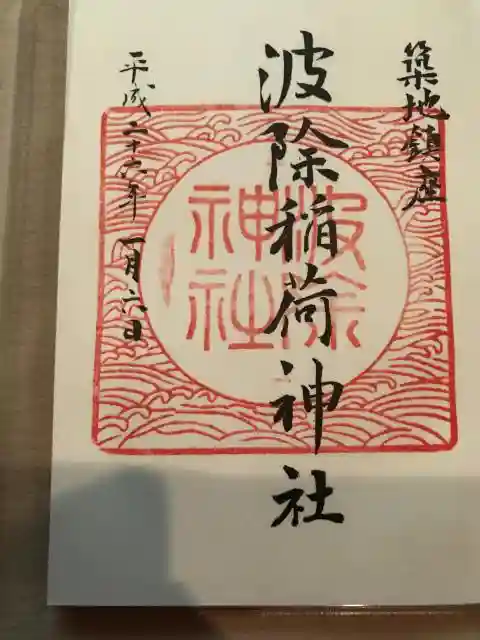 築地鎮座
波除稲荷神社
平成二十六年一月六日
波除
神社